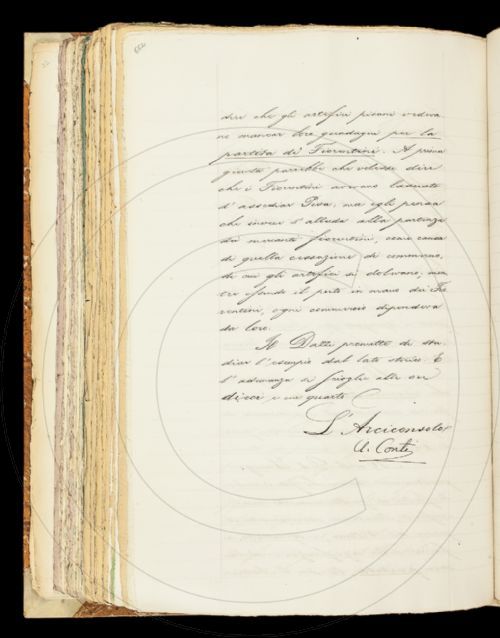 dire che gli artefici pisani vedeva
no mancar loro guadagni per la
partita di Fiorentini. A prima
giunta parrebbe che volesse dire
che i Fiorentini avevano lasciato
d'assediar Pisa, ma egli pensa
che invece s'alluda alla partenza
dei mercanti fiorentini, come causa
di quella cessazione di commercio,
di cui gli artefici si dolevano, men
tre essendo il porto in mano dei Fio
rentini, ogni commercio dipendeva
da loro.
Il Dalli promette di stu
diar l'esempio dal lato storico. E
l'adunanza si scioglie alle ore
dieci e un quarto
L'Arciconsolo
A. Conti